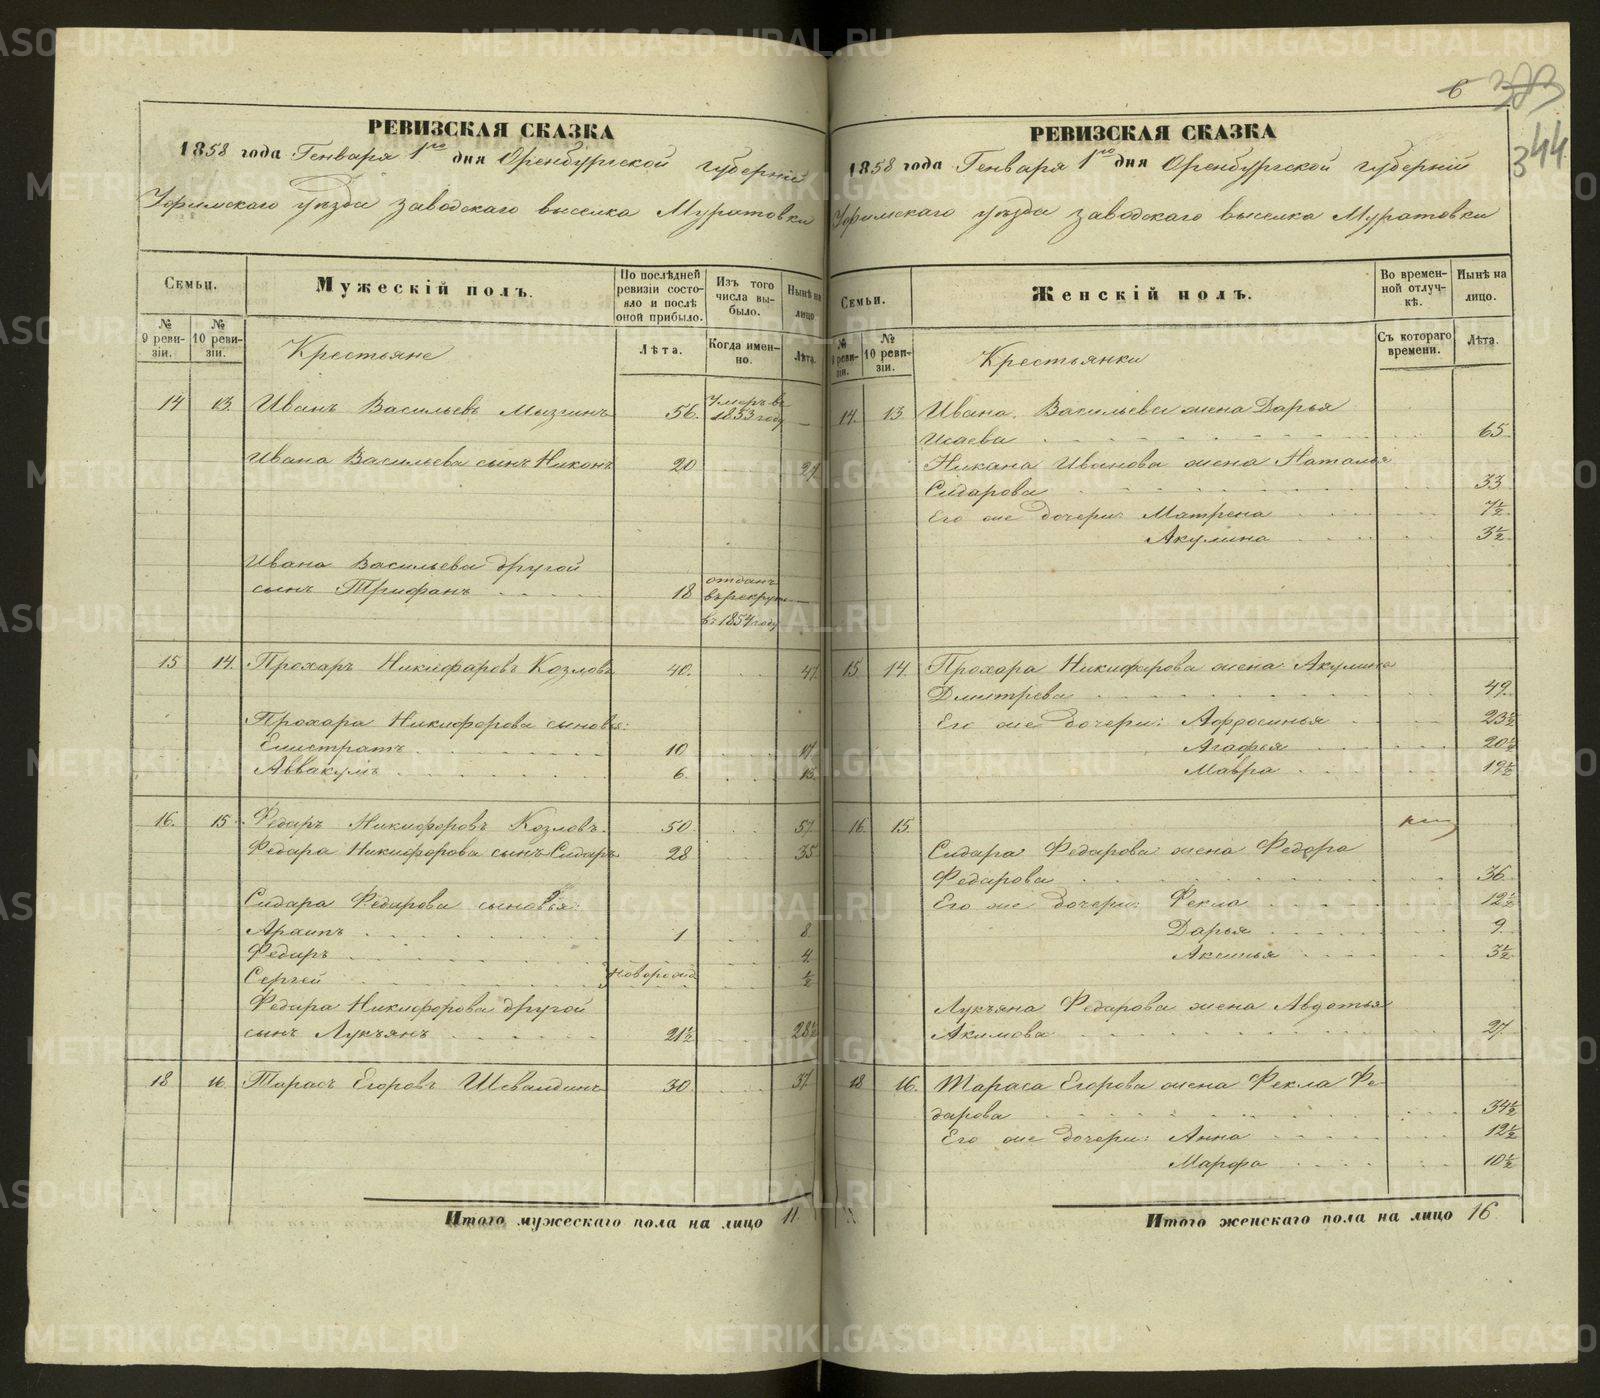 6 383
344
РЕВИЗСКАЯ СКАЗКА
1858 года Генваря 1го дня Оренбургской губернiи
Уфимскаго уѣзда заводскаго выселка Муратовки
Семьи.
Мужескiй полъ.
По послѣдней ревизiи состояло и послѣ оной прибыло.
Изъ того числа выбыло.
Нынѣ на лицо
№ 9 ревизiи.
№ 10 ревизiи.
Крестьяне
Лѣта.
Когда именно.
Лѣта.
14 13. Иванъ Васильевъ Мызгинъ 56. Умеръ въ 1853 году —
Ивана Васильева сынъ Никонъ 20 27
Ивана Васильева другой
сынъ Трифанъ 18 отданъ въ рекруты въ 1854 году —
15 14. Прохаръ Никифаровъ Козловъ 40. 47
Прохара Никифорова сыновья:
Елистратъ 10 17
Аввакумъ 6. 13.
16. 15. Федаръ Никифоровъ Козловъ. 50. 57.
Федара Никифорова сынъ Сидаръ 28 35
Сидара Федарова сыновья:
Архипъ 1 8
Федаръ 4
Сергей Новорожд ½
Федара Никифорова другой
сынъ Лукъянъ 21½ 28½
18 16. Тарасъ Егоровъ Шевалдинъ 30. 37
Итого мужескаго пола на лицо 11.
РЕВИЗСКАЯ СКАЗКА
1858 года Генваря 1го дня Оренбургской губернiи
Уфимскаго уѣзда заводскаго выселка Муратовки
Семьи.
Женскiй полъ.
Во временной отлучкѣ.
Нынѣ на лицо.
№ 9 ревизiи.
№ 10 ревизiи.
Крестьянки
Съ котораго времени.
Лѣта.
14. 13. Ивана Васильева жена Дарья
Исаева 65
Никана Иванова жена Наталья
Сидарова 33
Его же дочери: Матрена 7½
Акулина 3½
15. 14. Прохара Никифарова жена Акулина
Дмитрева 49.
Его же дочери: Афросинья 23½
Агафья 20½
Мавра 19½
16. 15.
Сидара Федарова жена Федора
Федарова 36
Его же дочери: Фекла 12½
Дарья 9.
Аксинья 3½
Лукъяна Федарова жена Авдотья
Акимова 27
18 16. Тараса Егорова жена Фекла Фе-
дарова 34½
Его же дочери: Анна 12½
Марфа 10½
Итого женскаго пола на лицо 16
METRIKI.GASO-URAL.RU